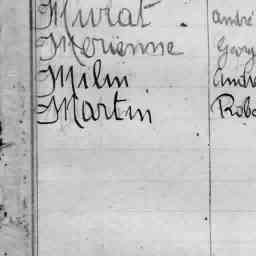 Murat André
Merienne Georg
Milin André
Martin Robe